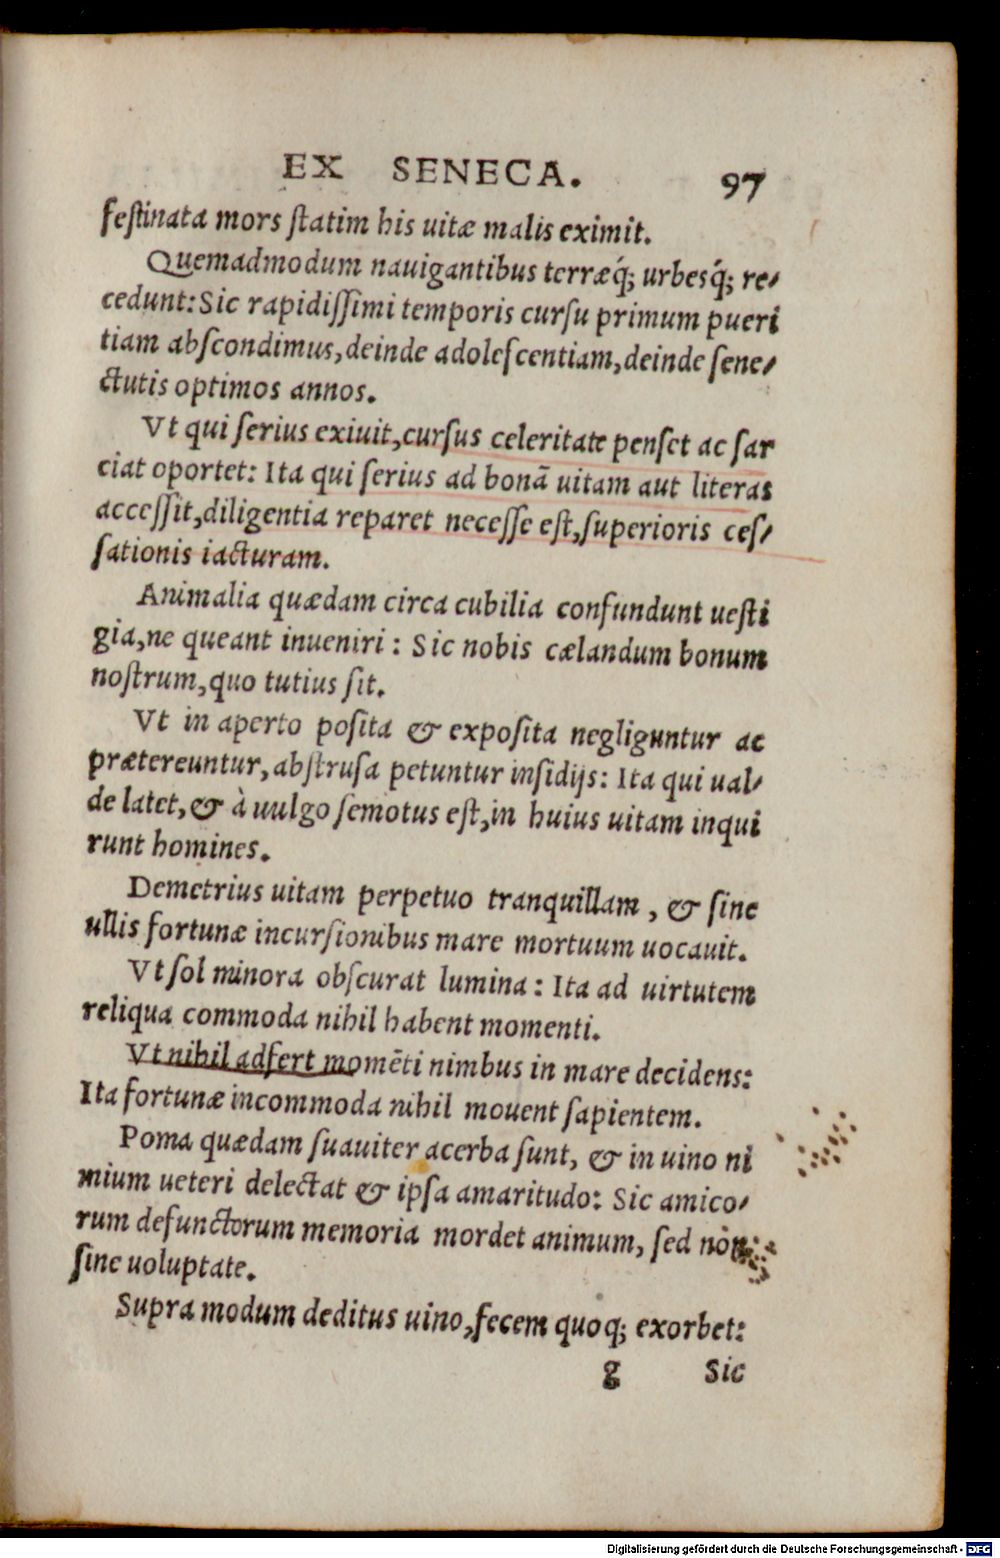 EX SENECA. 97
feſtinata mors ſtatim his uitæ malis eximit.
Quemadmodum nauigantibus terræq́; urbesq́; re-
cedunt: Sic rapidiſſimi temporis curſu primum pueri
tiam abſcondimus, deinde adoleſcentiam, deinde ſene-
ctutis optimos annos.
Vt qui ſerius exiuit, curſus celeritate penſet ac ſar
ciat oportet: Ita qui ſerius ad bonā uitam aut literas
acceſſit, diligentia reparet neceſſe eſt, ſuperioris ceſ-
ſationis iacturam.
Animalia quædam circa cubilia confundunt ueſti
gia, ne queant inueniri: Sic nobis cælandum bonum
noſtrum, quo tutius ſit.
Vt in aperto poſita & expoſita negliguntur ac
prætereuntur, abſtruſa petuntur inſidijs: Ita qui ual-
de latet, & à uulgo ſemotus eſt, in huius uitam inqui
runt homines.
Demetrius uitam perpetuo tranquillam, & ſine
ullis fortunæ incurſionibus mare mortuum uocauit.
Vt ſol minora obſcurat lumina: Ita ad uirtutem
reliqua commoda nihil habent momenti.
Vt nihil adfert momēti nimbus in mare decidens:
Ita fortunæ incommoda nihil mouent ſapientem.
Poma quædam ſuauiter acerba ſunt, & in uino ni
mium ueteri delectat & ipſa amaritudo: Sic amico-
rum defunctorum memoria mordet animum, ſed non
ſine uoluptate.
Supra modum deditus uino, fecem quoq; exorbet:
g Sic
Digitalisierung gefördert durch die Deutsche Forschungsgemeinschaft - DFG